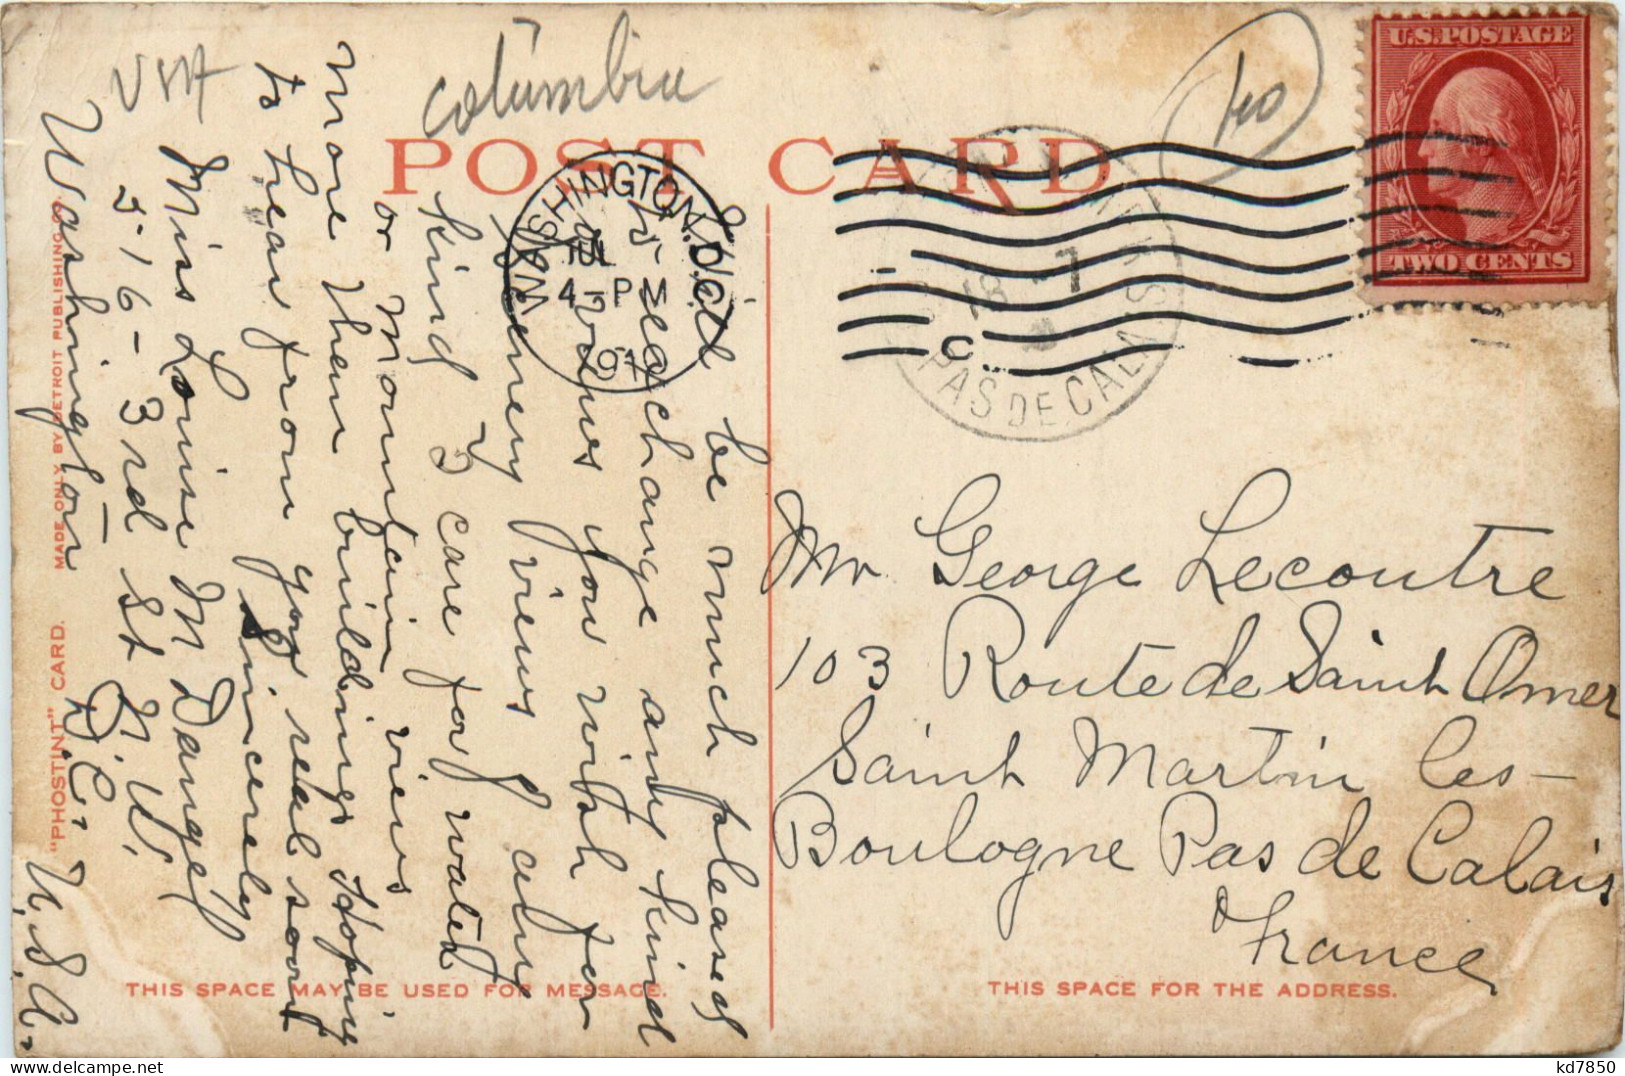 columbia
USA
40
POST CARD
U.S. POSTAGE
TWO CENTS
WASHINGTON, D.C.
4-P M
18 - 7
PAS DE CALAIS
I'll be much pleased
to exchange any kind
of views you wish for
Scenery views any
kind I care for water
or Mountain views
more then buildings Hoping
to hear from you real soon
Sincerely
Miss Louise M Dangel
216-3rd St N.W.
Washington D.C. U.S.A.
Mr George Lecoutre
103 Route de Saint Omer
Saint Martin les-
Boulogne Pas de Calais
France
"PHOSTINT" CARD. MADE ONLY BY DETROIT PUBLISHING CO.
THIS SPACE MAY BE USED FOR MESSAGE.
THIS SPACE FOR THE ADDRESS.
kd7850